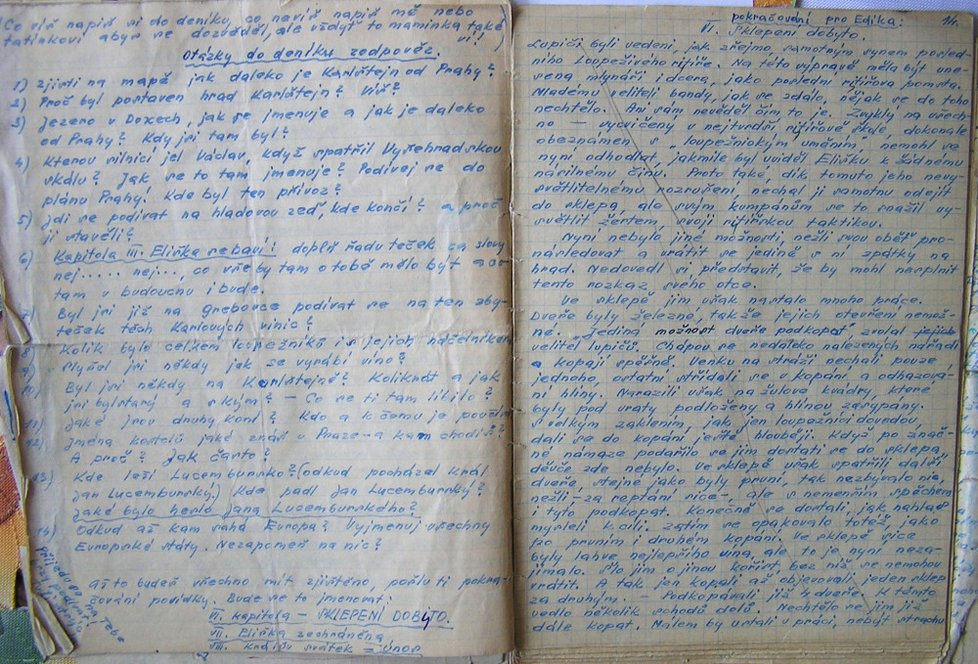 Co víš napiš si do deníku, co navíš napiš mě nebo
tatínkovi abys se dozvěděl, ale vždyť to maminka také
ví!
Otázky do deníku zodpověz.
1) Zjisti na mapě jak daleko je Karlštejn od Prahy?
2) Proč byl postaven hrad Karlštejn? Víš?
3) Jezero v Doxech, jak se jmenuje a jak je daleko
od Prahy? Kdy jsi tam byl?
4) Kterou silnicí jel Václav, když spatřil Vyšehradskou
skálu? Jak se to tam jmenuje? Podívej se do
plánu Prahy! Kde byl ten přívoz?
5) Jdi se podívat na hladovou zeď, kde končí? a proč
ji stavěli?
6) Kapitola III. Eliška se baví: doplň řadu teček za slovy
nej..... nej..., co vše by tam o tobě mělo být a co
tam v budoucnu i bude.
Byl jsi již na grebovce podívat se na ten zby-
teček těch Karlových vinic?
8) Kolik bylo celkem loupežníků i s jejich náčelníkem
9) Slyšel jsi někdy jak se vyrábí víno?
Byl jsi někdy na Karlštejně? Kolikrát a jak
jsi byl starý a s kým? - Co se ti tam líbilo?
11) Jaké jsou druhy koní? Kdo a k čemu je
12) Jména kostelů jaké znáš v Praze - a kam chodíš?
A proč? Jak často?
13) Kde leží Lucembursko? (odkud pocházal král
Jan Lucemburský.) Kde padl Jan Lucemburský?
Jaké bylo heslo Jana Lucemburského?
14) Odkud až kam sahá Evropa? Vyjmenuj všechny
Evropské státy. Nezapomeň na nic?
Až to budeš všechno mít zjištěno pošlu ti pokra-
čování povídky. Bude se to jmenovat:
VI. kapitola - SKLEPENÍ DOBYTO.
VII. Eliška zachráněna
VIII. Králův svátek = únos
pokračování pro Edíka:
VI. Sklepení dobyto.
Lupiči byli vedeni, jak zřejmo, samotným synem posled-
ního loupeživého rytíře. Na této výpravě měla být une-
sena mlynáři i dcera, jako poslední rytířova pomsta.
Mladému veliteli bandy, jak se zdálo, nějak se do toho
nechtělo. Ani sám nevěděl čím to je. Zvyklý na všech-
no - vycvičený v nejtvrdší rytířově škole, dokonale
obeznámen s "loupežnickým uměním, nemohl se
nyní odhodlat, jakmile byl uviděl Elišku k žádnému
násilnému činu. Proto také, dík tomuto jeho nevy-
světlitelnému rozrušení, nechal ji samotnu odejít
do sklepa, ale svým kumpánům se to snažil vy-
světlit žertem, svojí rytířskou taktikou.
Nyní nebylo jiné možnosti, nežli svou oběť pro-
následovat a vrátit se jedině s ní zpátky na
hrad. Nedovedl si představit, že by mohl nesplnit
tento rozkaz svého otce.
Ve sklepě jim však nastalo mnoho práce.
Dveře byly železné, takže jejich otevření nemož-
né. "Jediná možnost dveře podkopat" zvolal jejich
velitel lupičů. Chápou se nedaleko nalezených nářadí
a kopají spěšně. Venku na stráži nechali pouze
jednoho, ostatní střídali se v kopání a odhazová-
ní hlíny. Narazili však na žulové kvádry, které
byly pod vraty podloženy a hlínou zasypány.
S velkým zaklením, jak jen loupežníci dovedou,
dali se do kopání ještě hlouběji. Když po znač-
né námaze podařilo se jim dostati se do sklepa,
děvče zde nebylo. Ve sklepě však spatřili další
dveře, stejné jako byly první, tak nezbývalo nic,
nežli - za reptání sice -, ale s nemenším spěchem
i tyto podkopat. Konečně se dostali, jak nahlas
mysleli k cíli. Zatím se opakovalo totéž, jako
po prvním i druhém kopání. Ve sklepě sice
byly lahve nejlepšího vína, ale to je nyní neza-
jímalo. Šlo jim o jinou kořist, bez níž se nemohou
vrátit. A tak jen kopali až objevovali jeden sklep
za druhým. - Podkopávali již 4 dveře. K těmto
vedlo několik schodů dolů. Nechtělo se jim již
dále kopat. Málem by ustali v práci, nebýt strachu